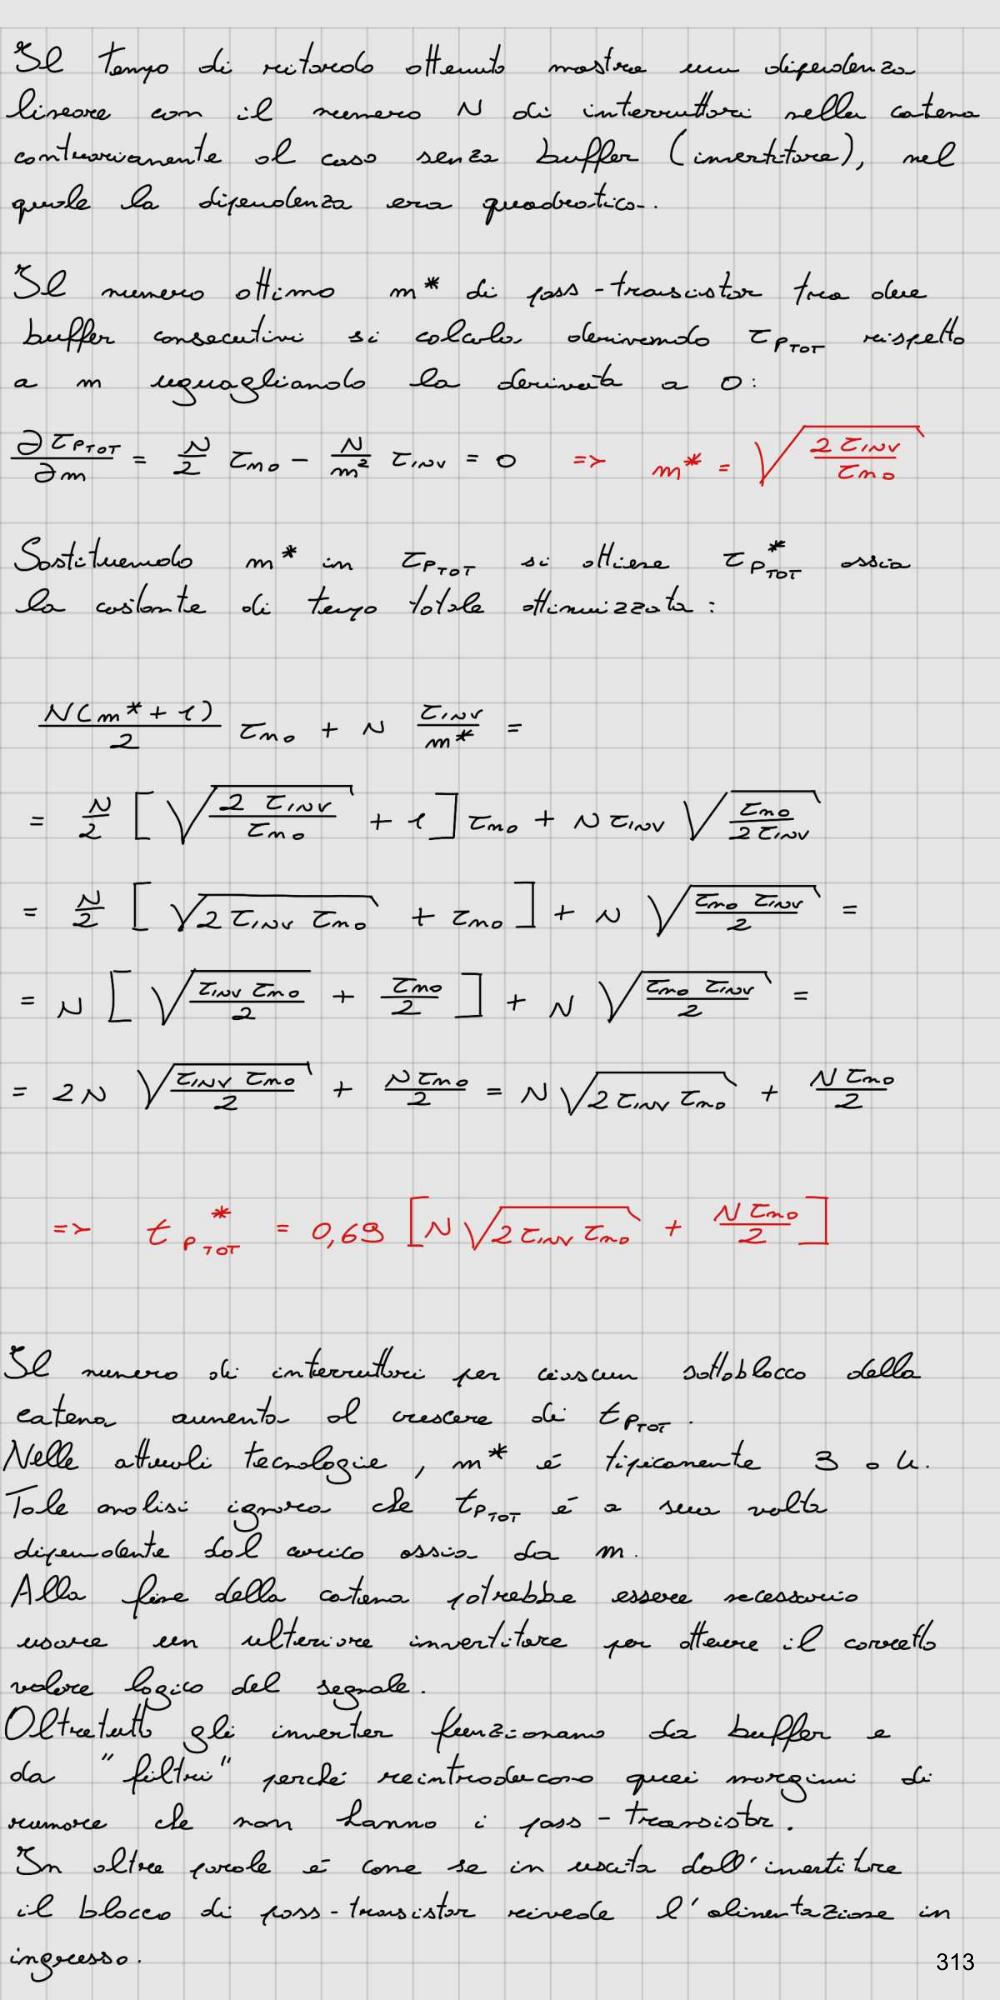 Il tempo di ritardo ottenuto mostra una dipendenza
lineare con il numero N di interruttori nella catena
contrariamente al caso senza buffer (invertitore), nel
quale la dipendenza era quadratica.
Il numero ottimo m* di pass-transistor tra due
buffer consecutivi si calcola derivando τ_PTOT rispetto
a m uguagliando la derivata a 0:
∂τ_PTOT/∂m = N/2 τ_no - N/m² τ_INV = 0 => m* = √(2τ_INV/τ_no)
Sostituendo m* in τ_PTOT si ottiene τ*_PTOT ossia
la costante di tempo totale ottimizzata:
N(m*+1)/2 τ_no + N τ_INV/m* =
= N/2 [√(2τ_INV/τ_no) + 1] τ_no + N τ_INV √(τ_no/2τ_INV)
= N/2 [√(2τ_INV τ_no) + τ_no] + N √(τ_no τ_INV/2) =
= N [√(τ_INV τ_no/2) + τ_no/2] + N √(τ_no τ_INV/2) =
= 2N √(τ_INV τ_no/2) + Nτ_no/2 = N√(2τ_INV τ_no) + Nτ_no/2
=> t*_PTOT = 0,69 [N√(2τ_INV τ_no) + Nτ_no/2]
Il numero di interruttori per ciascun sottoblocco della
catena aumenta al crescere di t_PTOT.
Nelle attuali tecnologie, m* é tipicamente 3 o 4.
Tale analisi ignora che t_PTOT é a sua volta
dipendente dal carico ossia da m.
Alla fine della catena potrebbe essere necessario
usare un ulteriore invertitore per ottenere il corretto
valore logico del segnale.
Oltretutto gli inverter funzionano da buffer e
da "filtri" perché reintroducono quei margini di
rumore che non hanno i pass-transistor.
In altre parole é come se in uscita dall'invertitore
il blocco di pass-transistor rivede l'alimentazione in
ingresso.
313